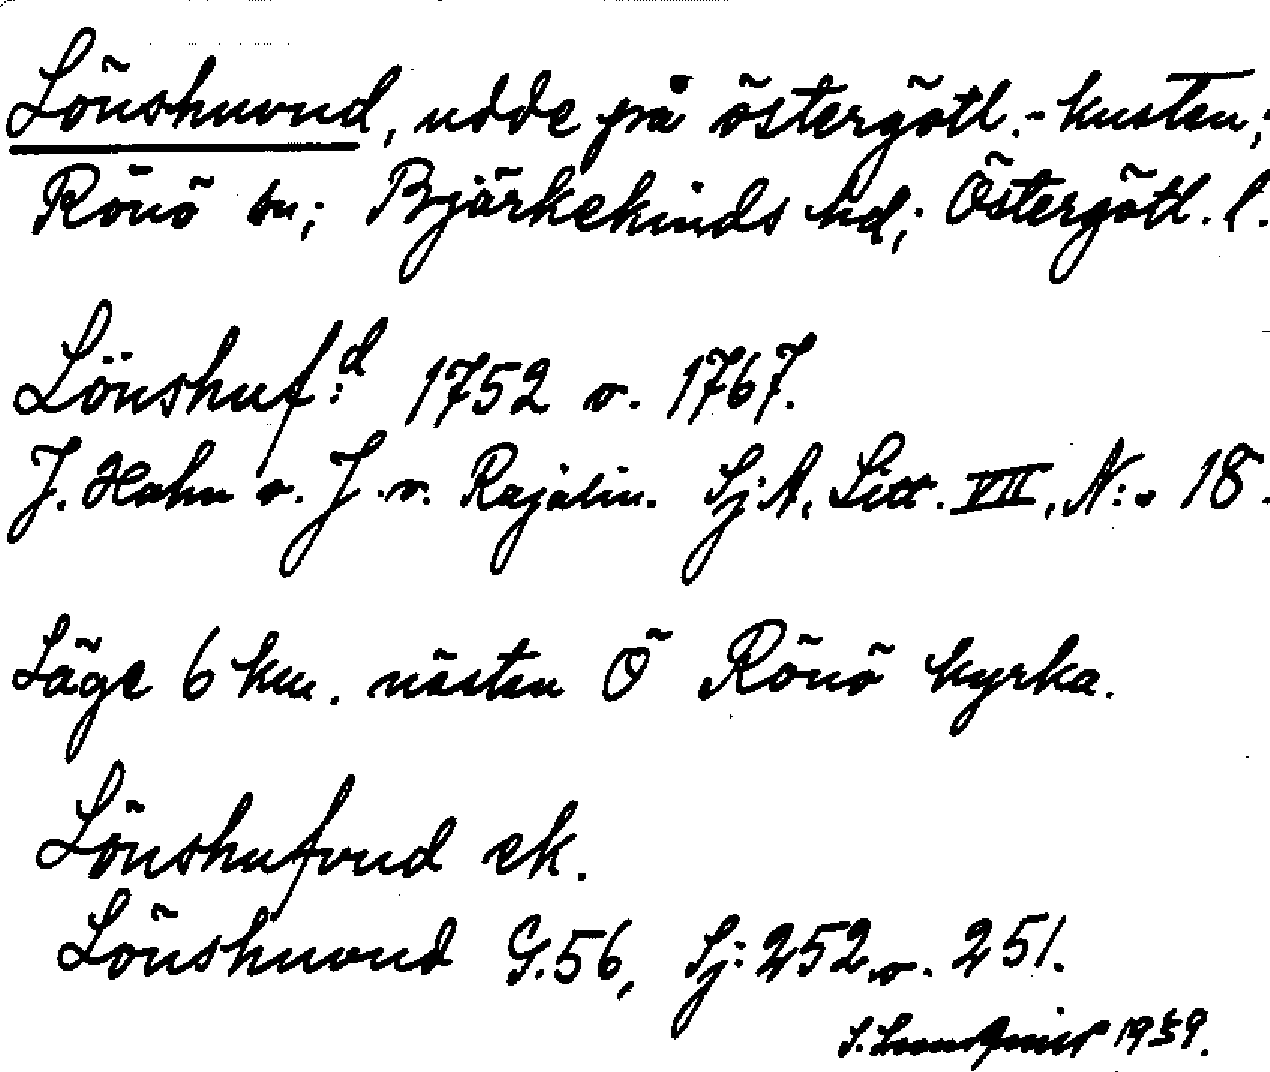 Lönshuvud, udde på östergötl.-kusten;
Rönö sn; Björkekinds hd; Östergötl. l.
Lönshuf:d 1752 o. 1767.
J. Hahn o. J. v. Rajalin. Sj.A. Litt. VII, N:o 18.
Läge 6 km. nästan Ö Rönö kyrka.
Lönshufvud ek.
Lönshuvud G.56, Sj: 252 o. 251.
1939.